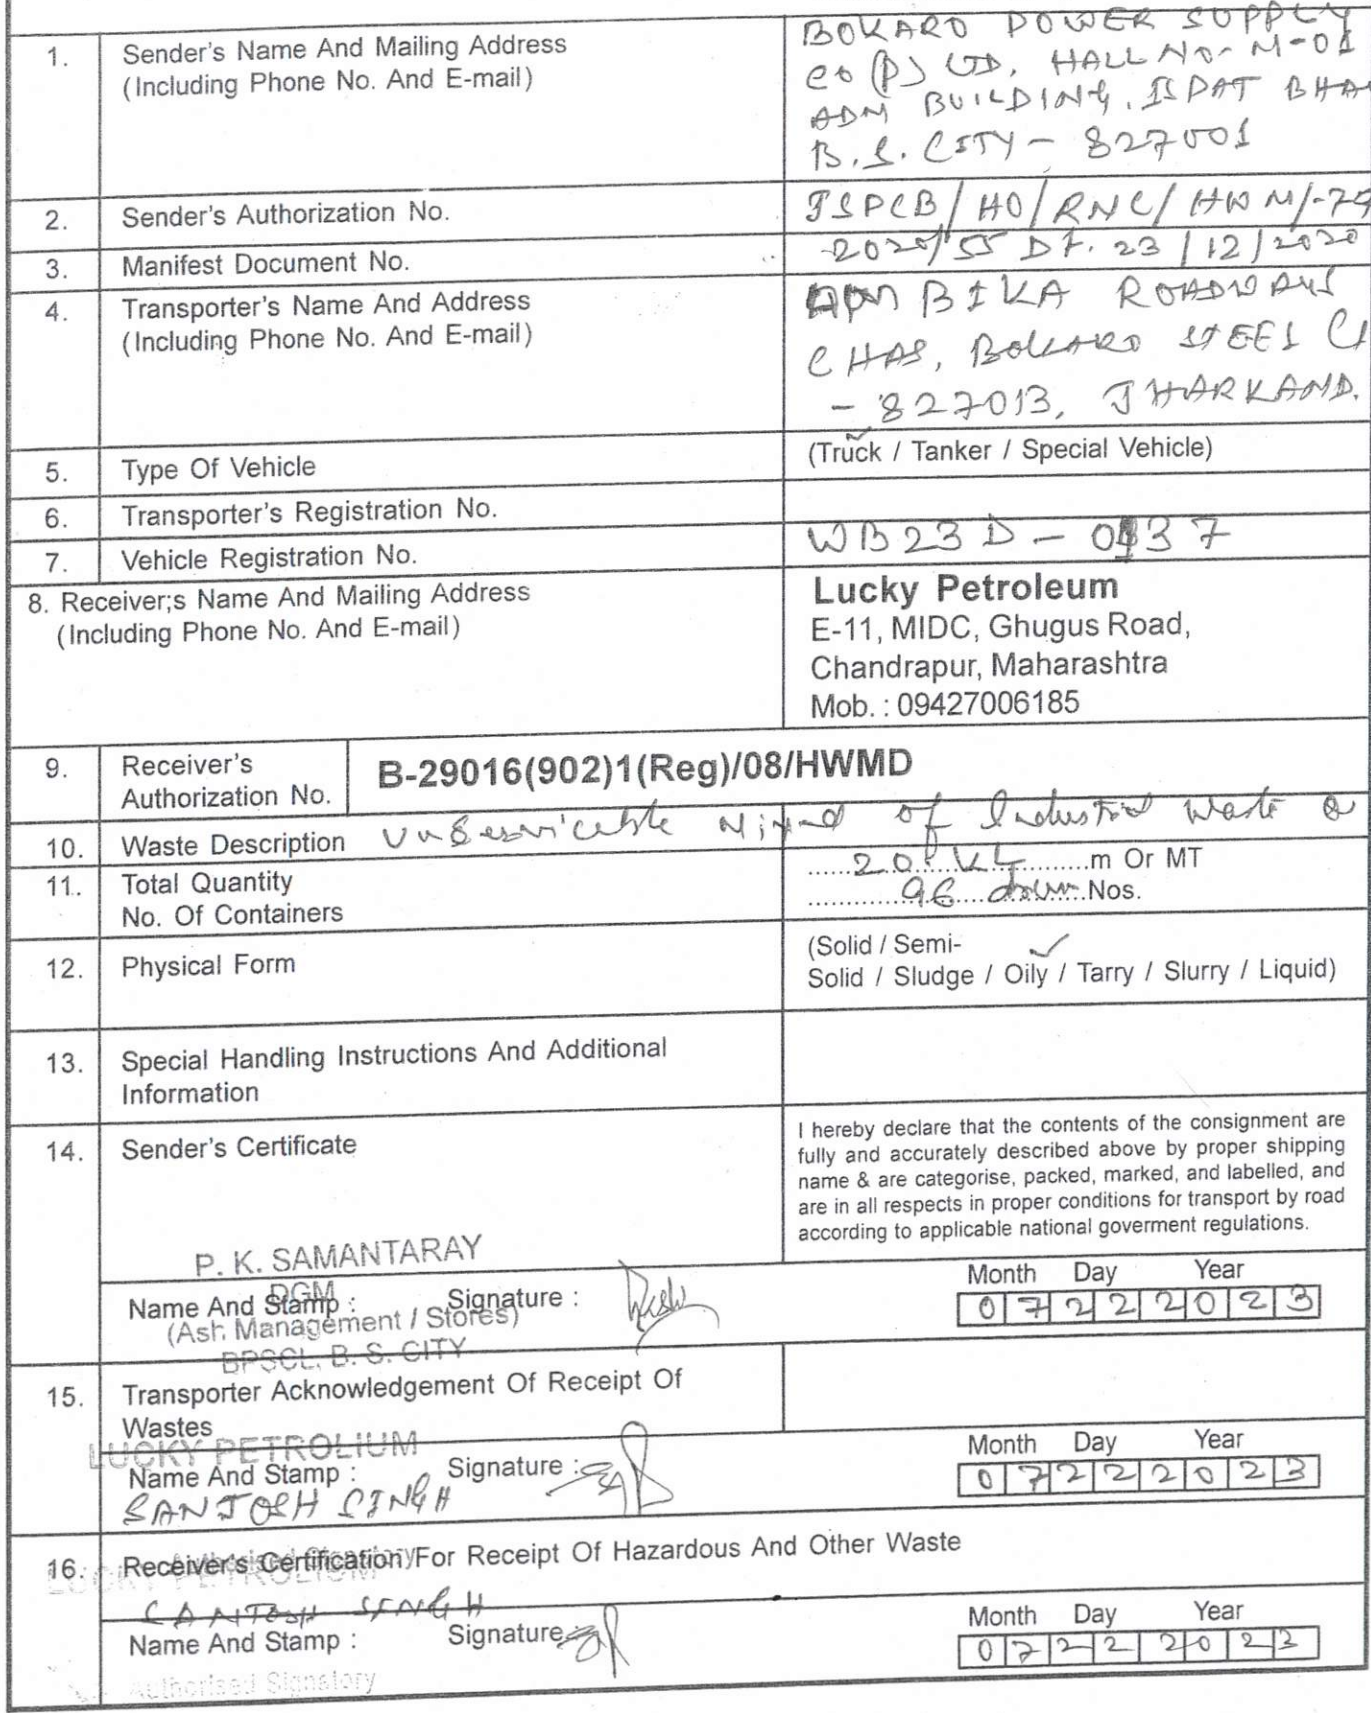 1. Sender's Name And Mailing Address
(Including Phone No. And E-mail)
BOKARO POWER SUPPLY
CO (P) LTD, HALL NO- M-01
ADM BUILDING, ISPAT BHA
B.S. CITY - 827001
2. Sender's Authorization No.
JSPCB/HO/RNC/HWM/-75
3. Manifest Document No.
2020/55 DT. 23/12/2020
4. Transporter's Name And Address
(Including Phone No. And E-mail)
AMBIKA ROADWAYS
CHAS, BOKARO STEEL CI
- 827013, JHARKAND.
5. Type Of Vehicle
(Truck / Tanker / Special Vehicle)
6. Transporter's Registration No.
7. Vehicle Registration No.
WB23D-0137
8. Receiver;s Name And Mailing Address
(Including Phone No. And E-mail)
Lucky Petroleum
E-11, MIDC, Ghugus Road,
Chandrapur, Maharashtra
Mob. : 09427006185
9. Receiver's
Authorization No.
B-29016(902)1(Reg)/08/HWMD
10. Waste Description Unservicable Mixed of Industrial Waste
11. Total Quantity
No. Of Containers
20 KL m Or MT
96 drum Nos.
12. Physical Form
(Solid / Semi-
Solid / Sludge / Oily / Tarry / Slurry / Liquid)
13. Special Handling Instructions And Additional
Information
14. Sender's Certificate
I hereby declare that the contents of the consignment are
fully and accurately described above by proper shipping
name & are categorise, packed, marked, and labelled, and
are in all respects in proper conditions for transport by road
according to applicable national goverment regulations.
P. K. SAMANTARAY
DGM
Name And Stamp : Signature :
(Ash Management / Stores)
BPSCL, B. S. CITY
Month Day Year
07222023
15. Transporter Acknowledgement Of Receipt Of
Wastes
LUCKY PETROLIUM
Name And Stamp : Signature :
SANTOSH SINGH
Month Day Year
07222023
Authorised Signatory
16. Receiver's Certification For Receipt Of Hazardous And Other Waste
LUCKY PETROLIUM
SANTOSH SINGH
Name And Stamp : Signature
Month Day Year
07222023
Authorised Signatory